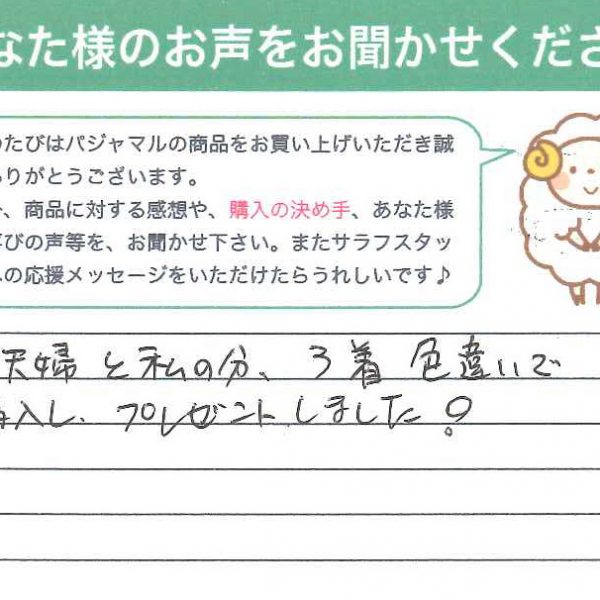 なた様のお声をお聞かせくださ
のたびはパジャマルの商品をお買い上げいただき誠
ありがとうございます。
、商品に対する感想や、購入の決め手、あなた様
喜びの声等を、お聞かせ下さい。またサラフスタッ
への応援メッセージをいただけたらうれしいです♪
夫婦と私の分、3着 色違いで
入し、プレゼントしました♀